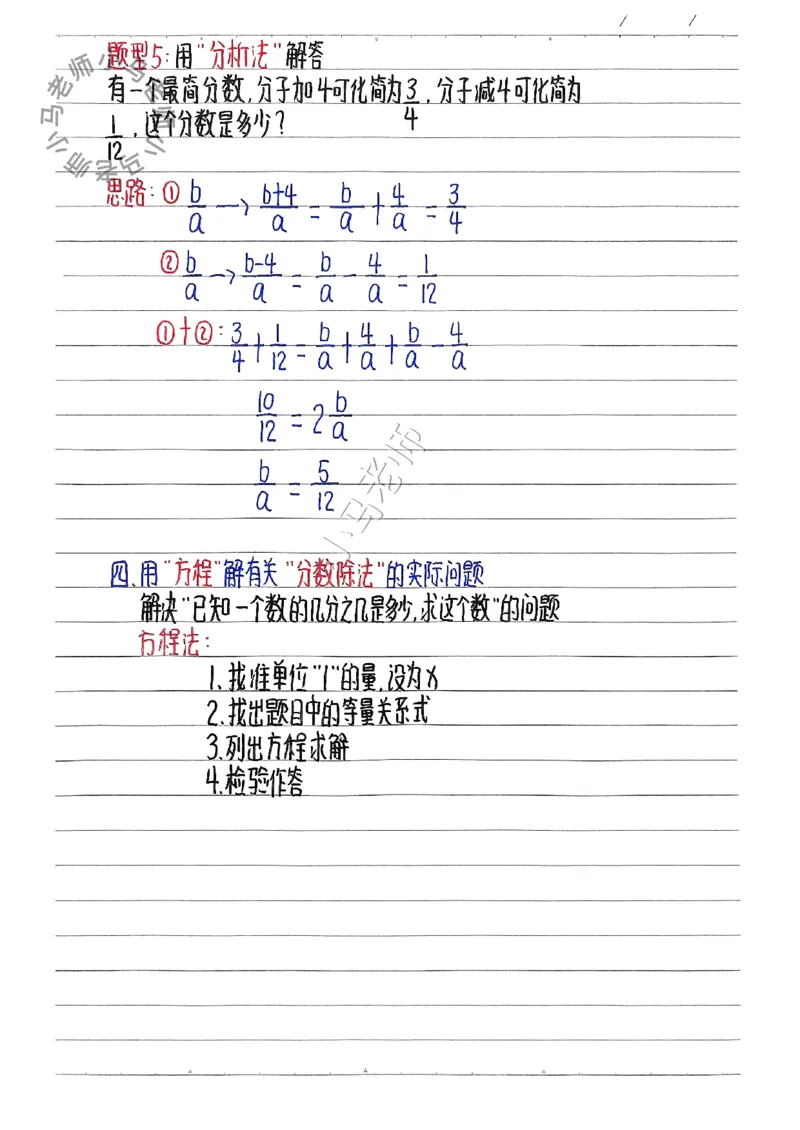 / /
题型5:用"分析法"解答
有一个最简分数,分子加4可化简为3/4,分子减4可化简为
1/12,这个分数是多少?
思路:① b/a → b+4/a = b/a + 4/a = 3/4
② b/a → b-4/a = b/a - 4/a = 1/12
①+②: 3/4 + 1/12 = b/a + 4/a + b/a - 4/a
10/12 = 2 b/a
b/a = 5/12
四、用"方程"解有关"分数除法"的实际问题
解决"已知一个数的几分之几是多少,求这个数"的问题
方程法:
1.找准单位"1"的量,设为x
2.找出题目中的等量关系式
3.列出方程求解
4.检验作答
小马老师小马老师小马老师
小马老师